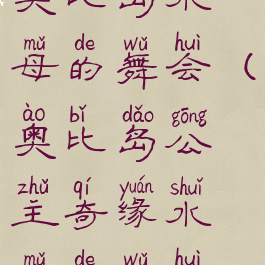 奥比岛水
mǔ de wǔ huì
母的舞会（
ào bǐ dǎo gōng
奥比岛公
zhǔ qí yuán shuǐ
主奇缘水
mǔ de wǔ huì